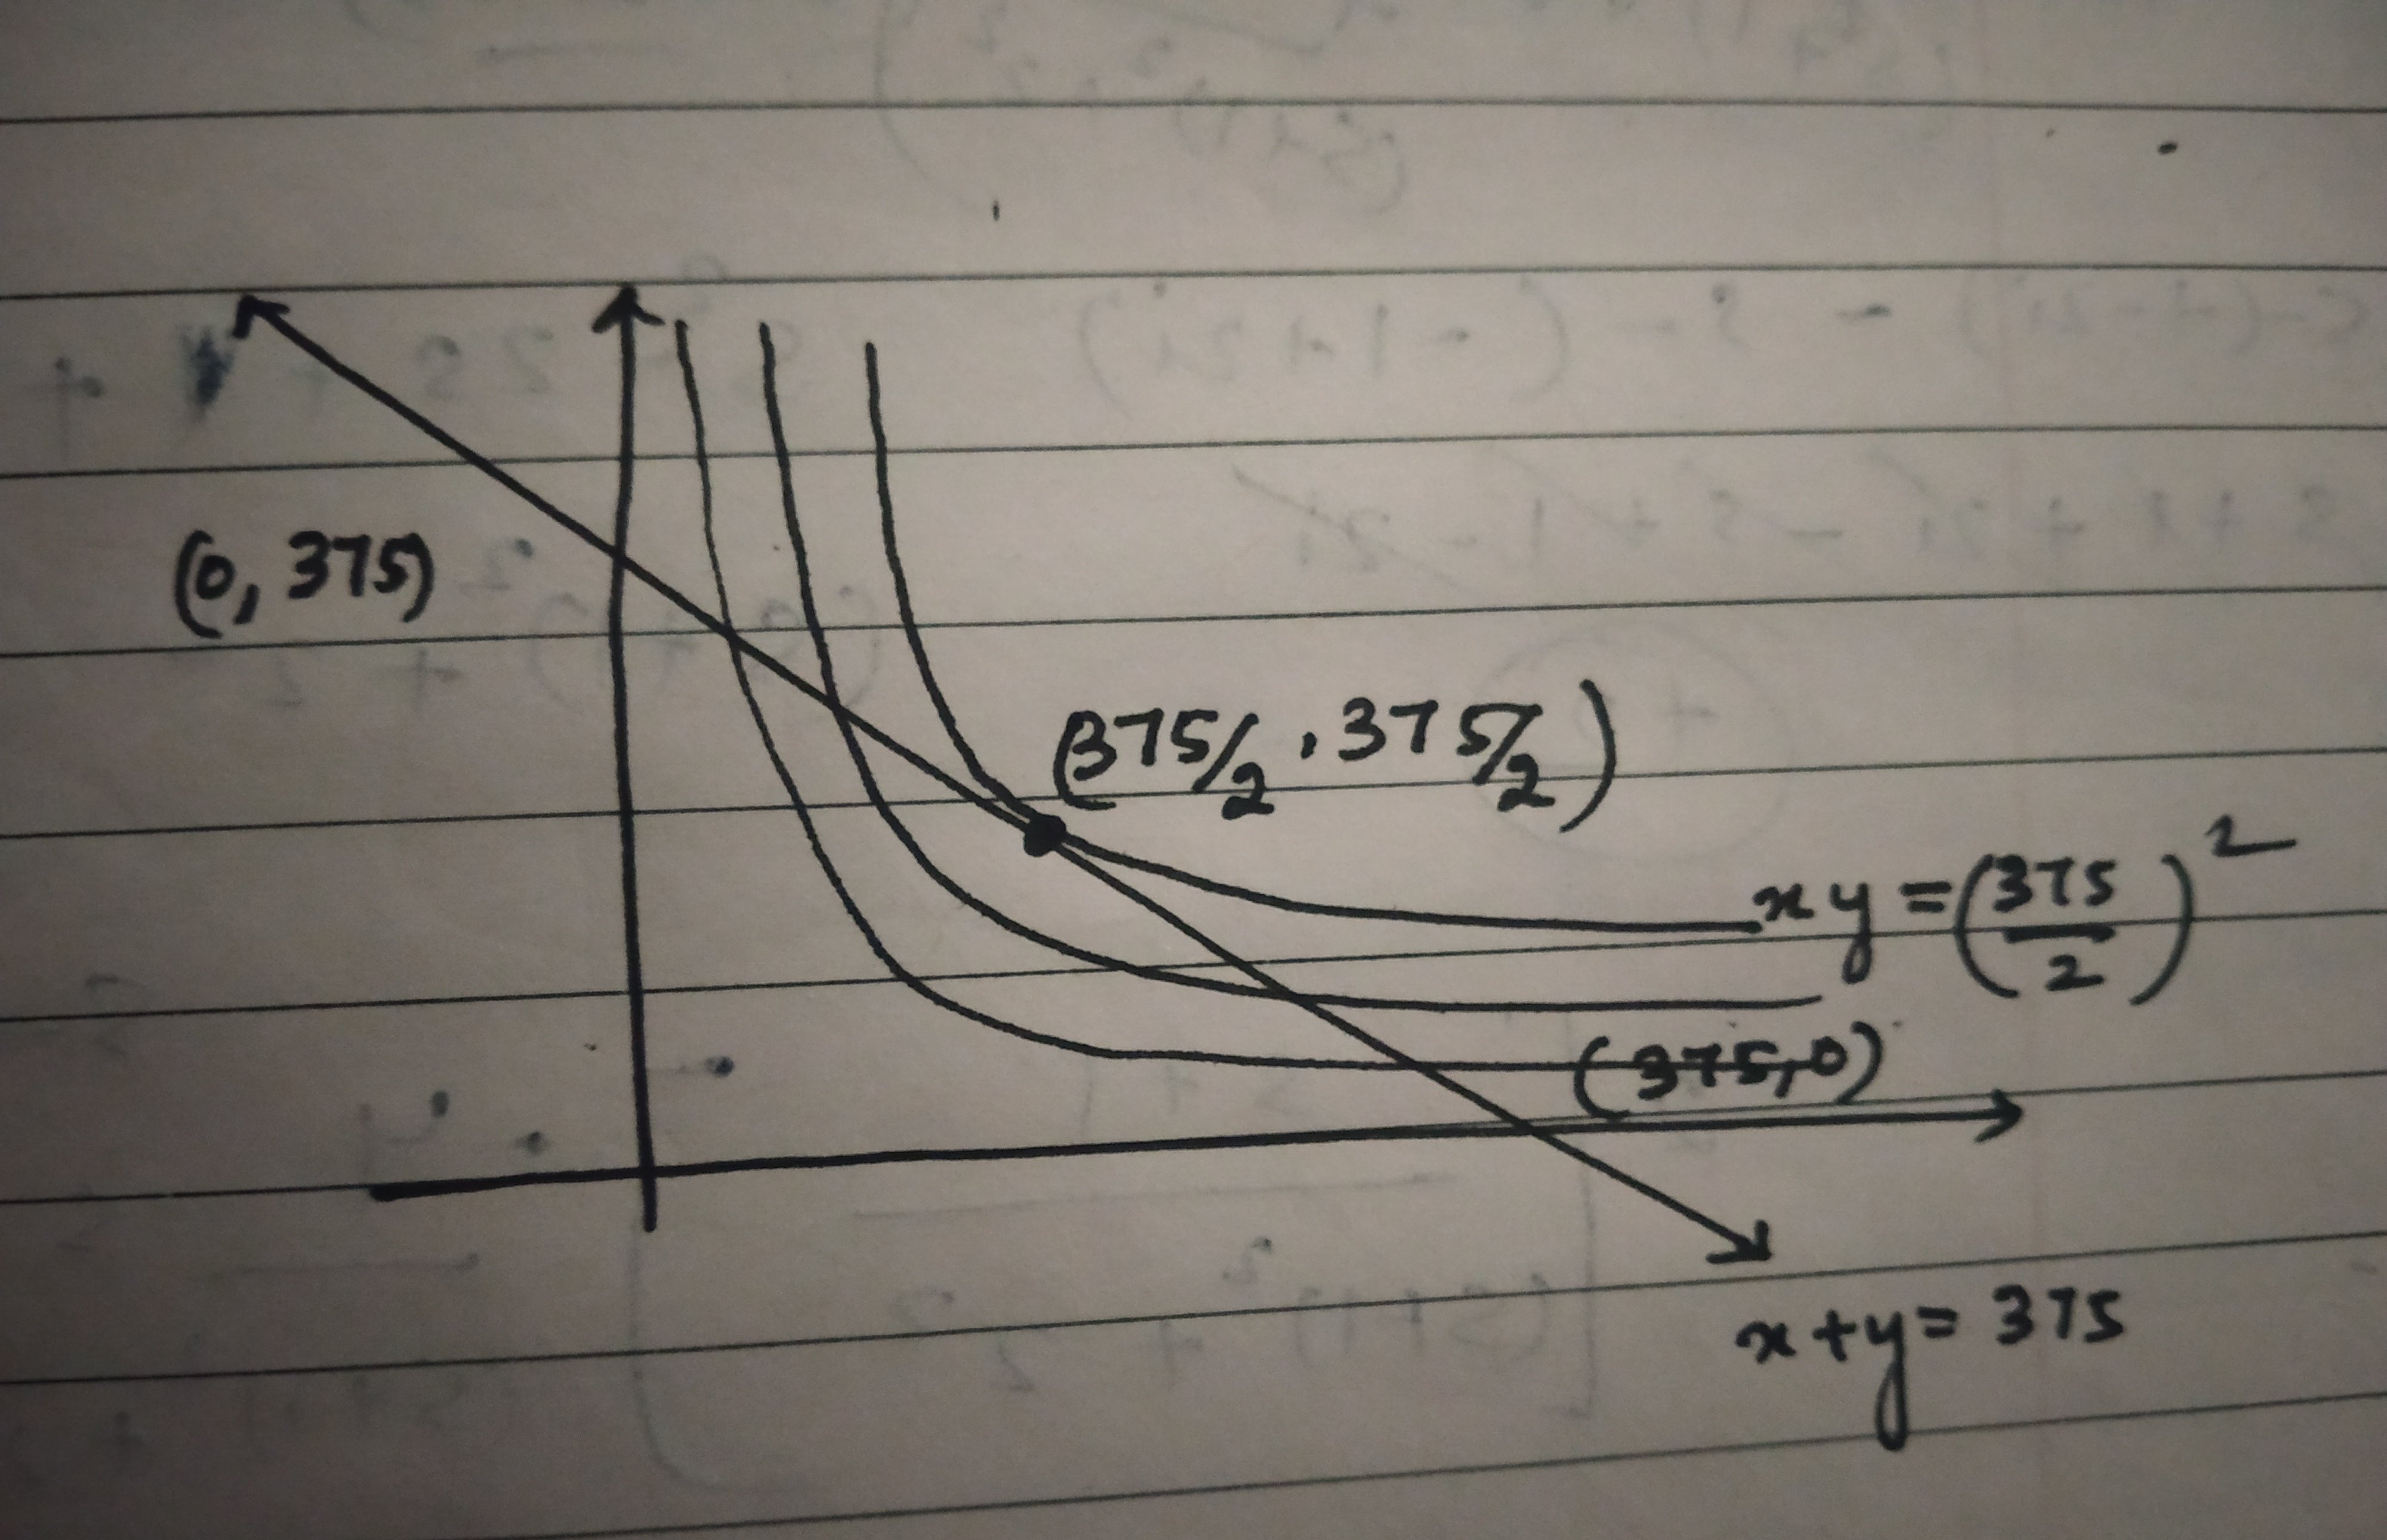 (0, 375)
(375/2 , 375/2)
xy = (375/2)²
(375,0)
x+y= 375